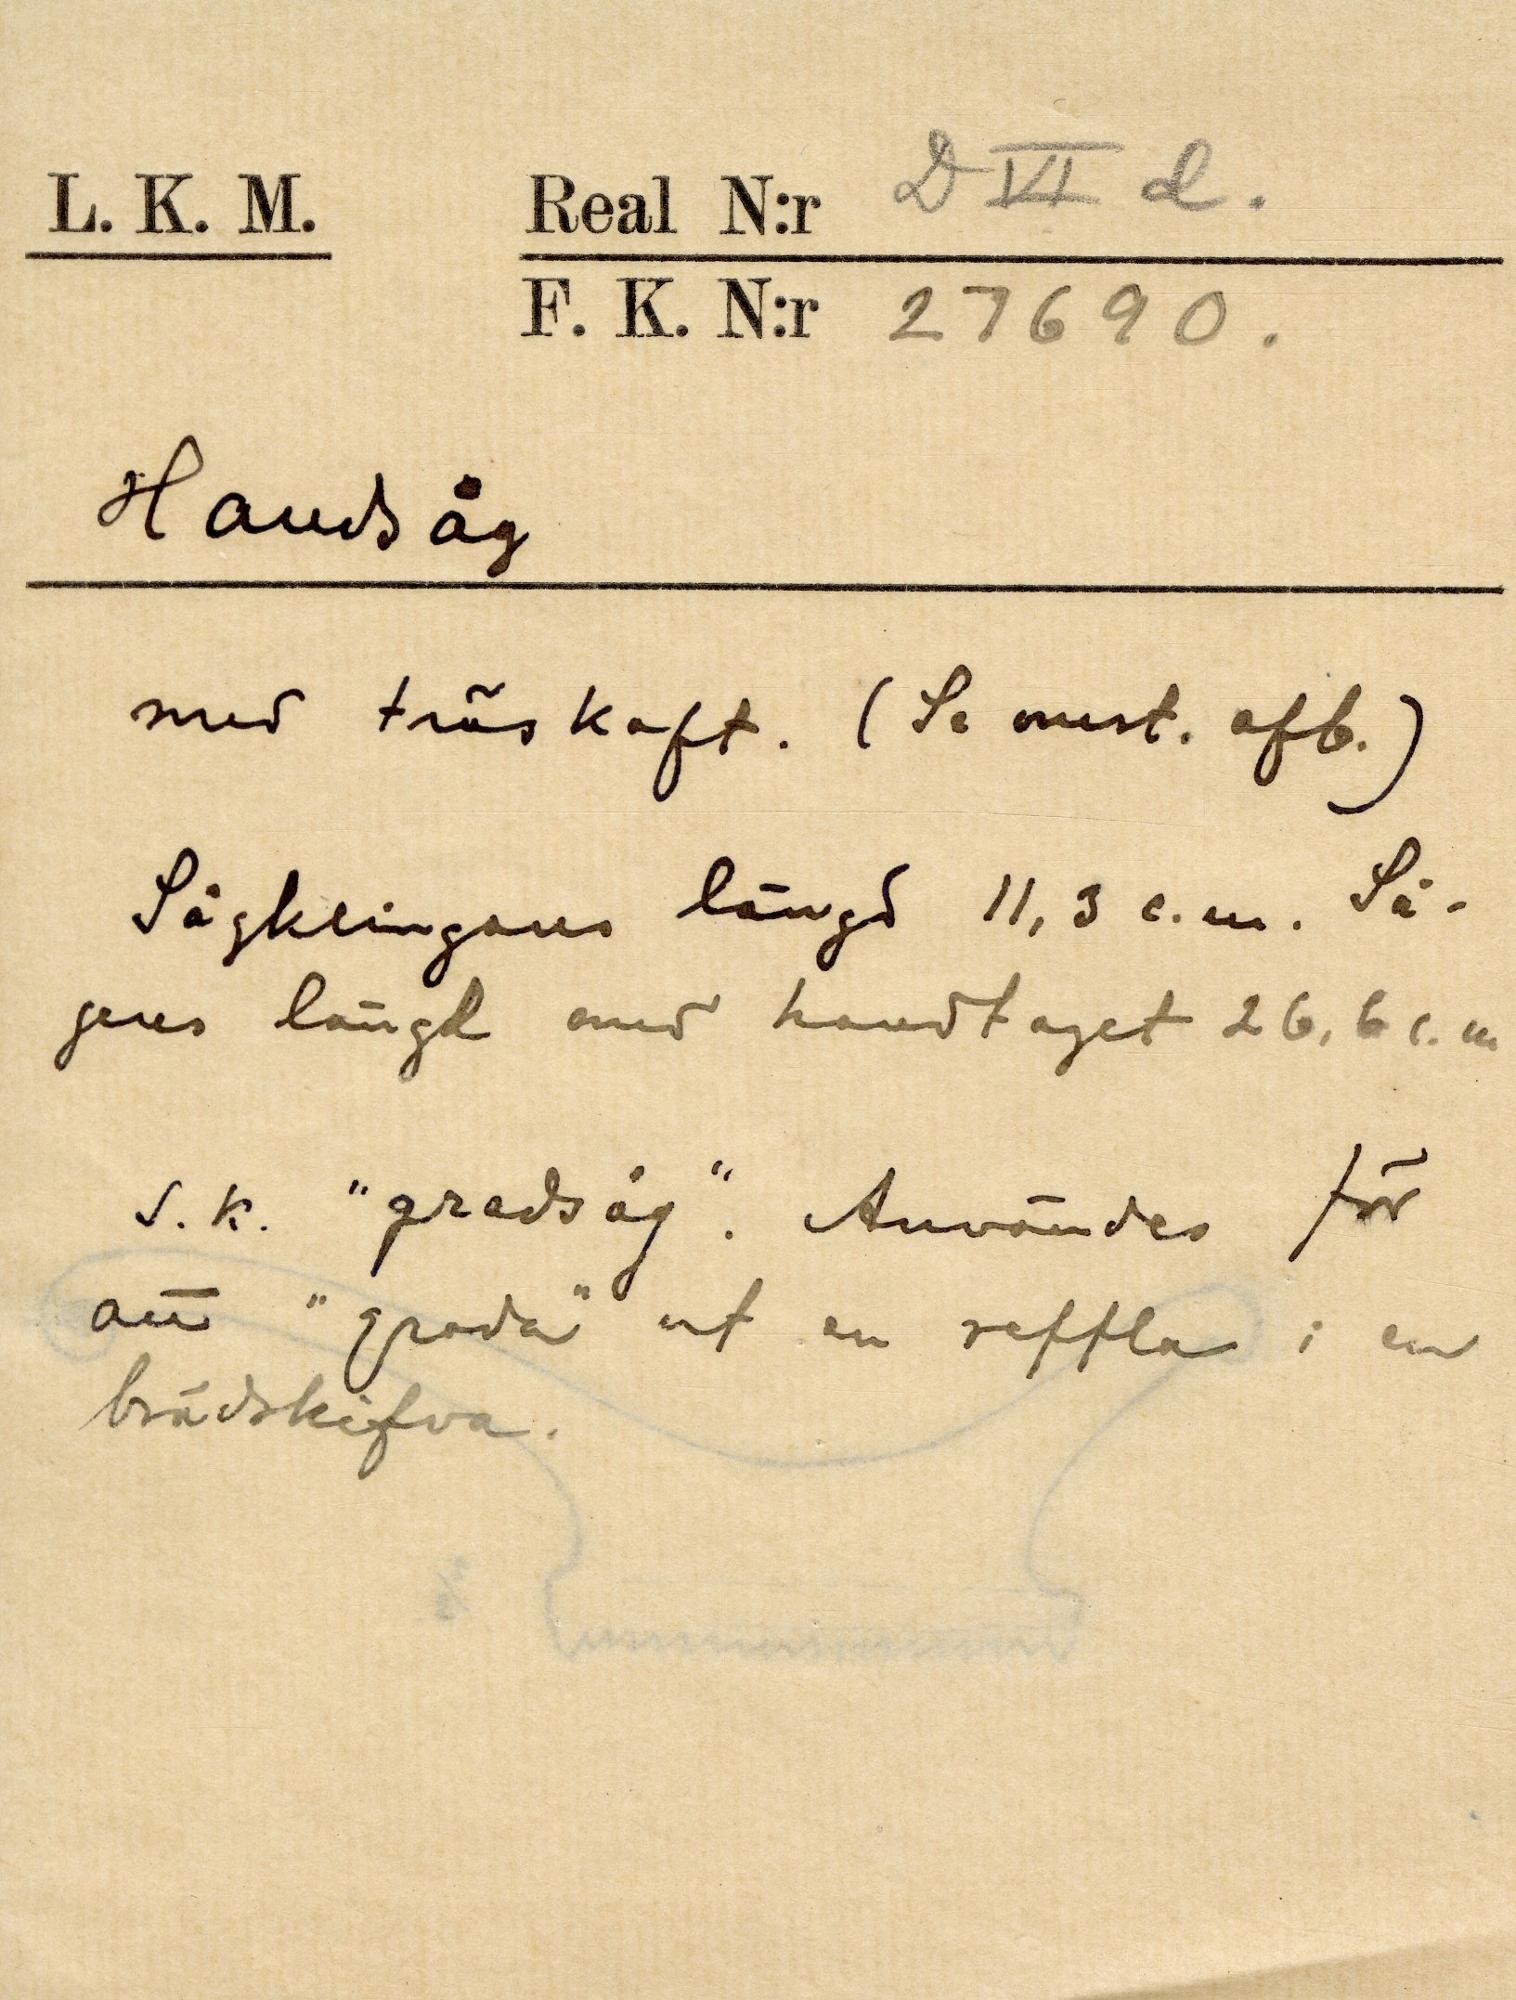 L. K. M. Real N:r D VI d.
F. K. N:r 27690.
Handsåg
med träskaft. (Se omst. afb.)
Sågklingans längd 11,3 c.m. Så-
gens längd med handtaget 26,6 c.m
s.k. "gradsåg". Användes för
att "grada" ut en reffla i en
brädskifva.